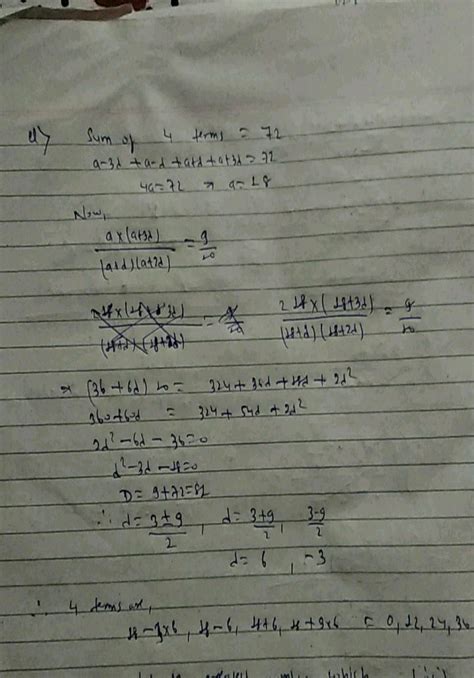 Sum of 4 terms = 72
a-3d + a-d + a+d + a+3d = 72
4a = 72 ⇒ a = 18
Now,
a×(a+3d) / (a+d)(a+2d) = 9/10
2 18×(18+3d) / (18+d)(18+2d) = 9/10
⇒ (36+6d) 10 = 324+36d+18d+2d²
360+60d = 324+54d+2d²
2d²-6d-36=0
d²-3d-18=0
D = 9+72=81
∴ d = 3±9/2, d = 3+9/2, 3-9/2
d = 6, -3
∴ 4 terms are,
18-3×6, 18-6, 18+6, 18+3×6 = 0, 12, 24, 36